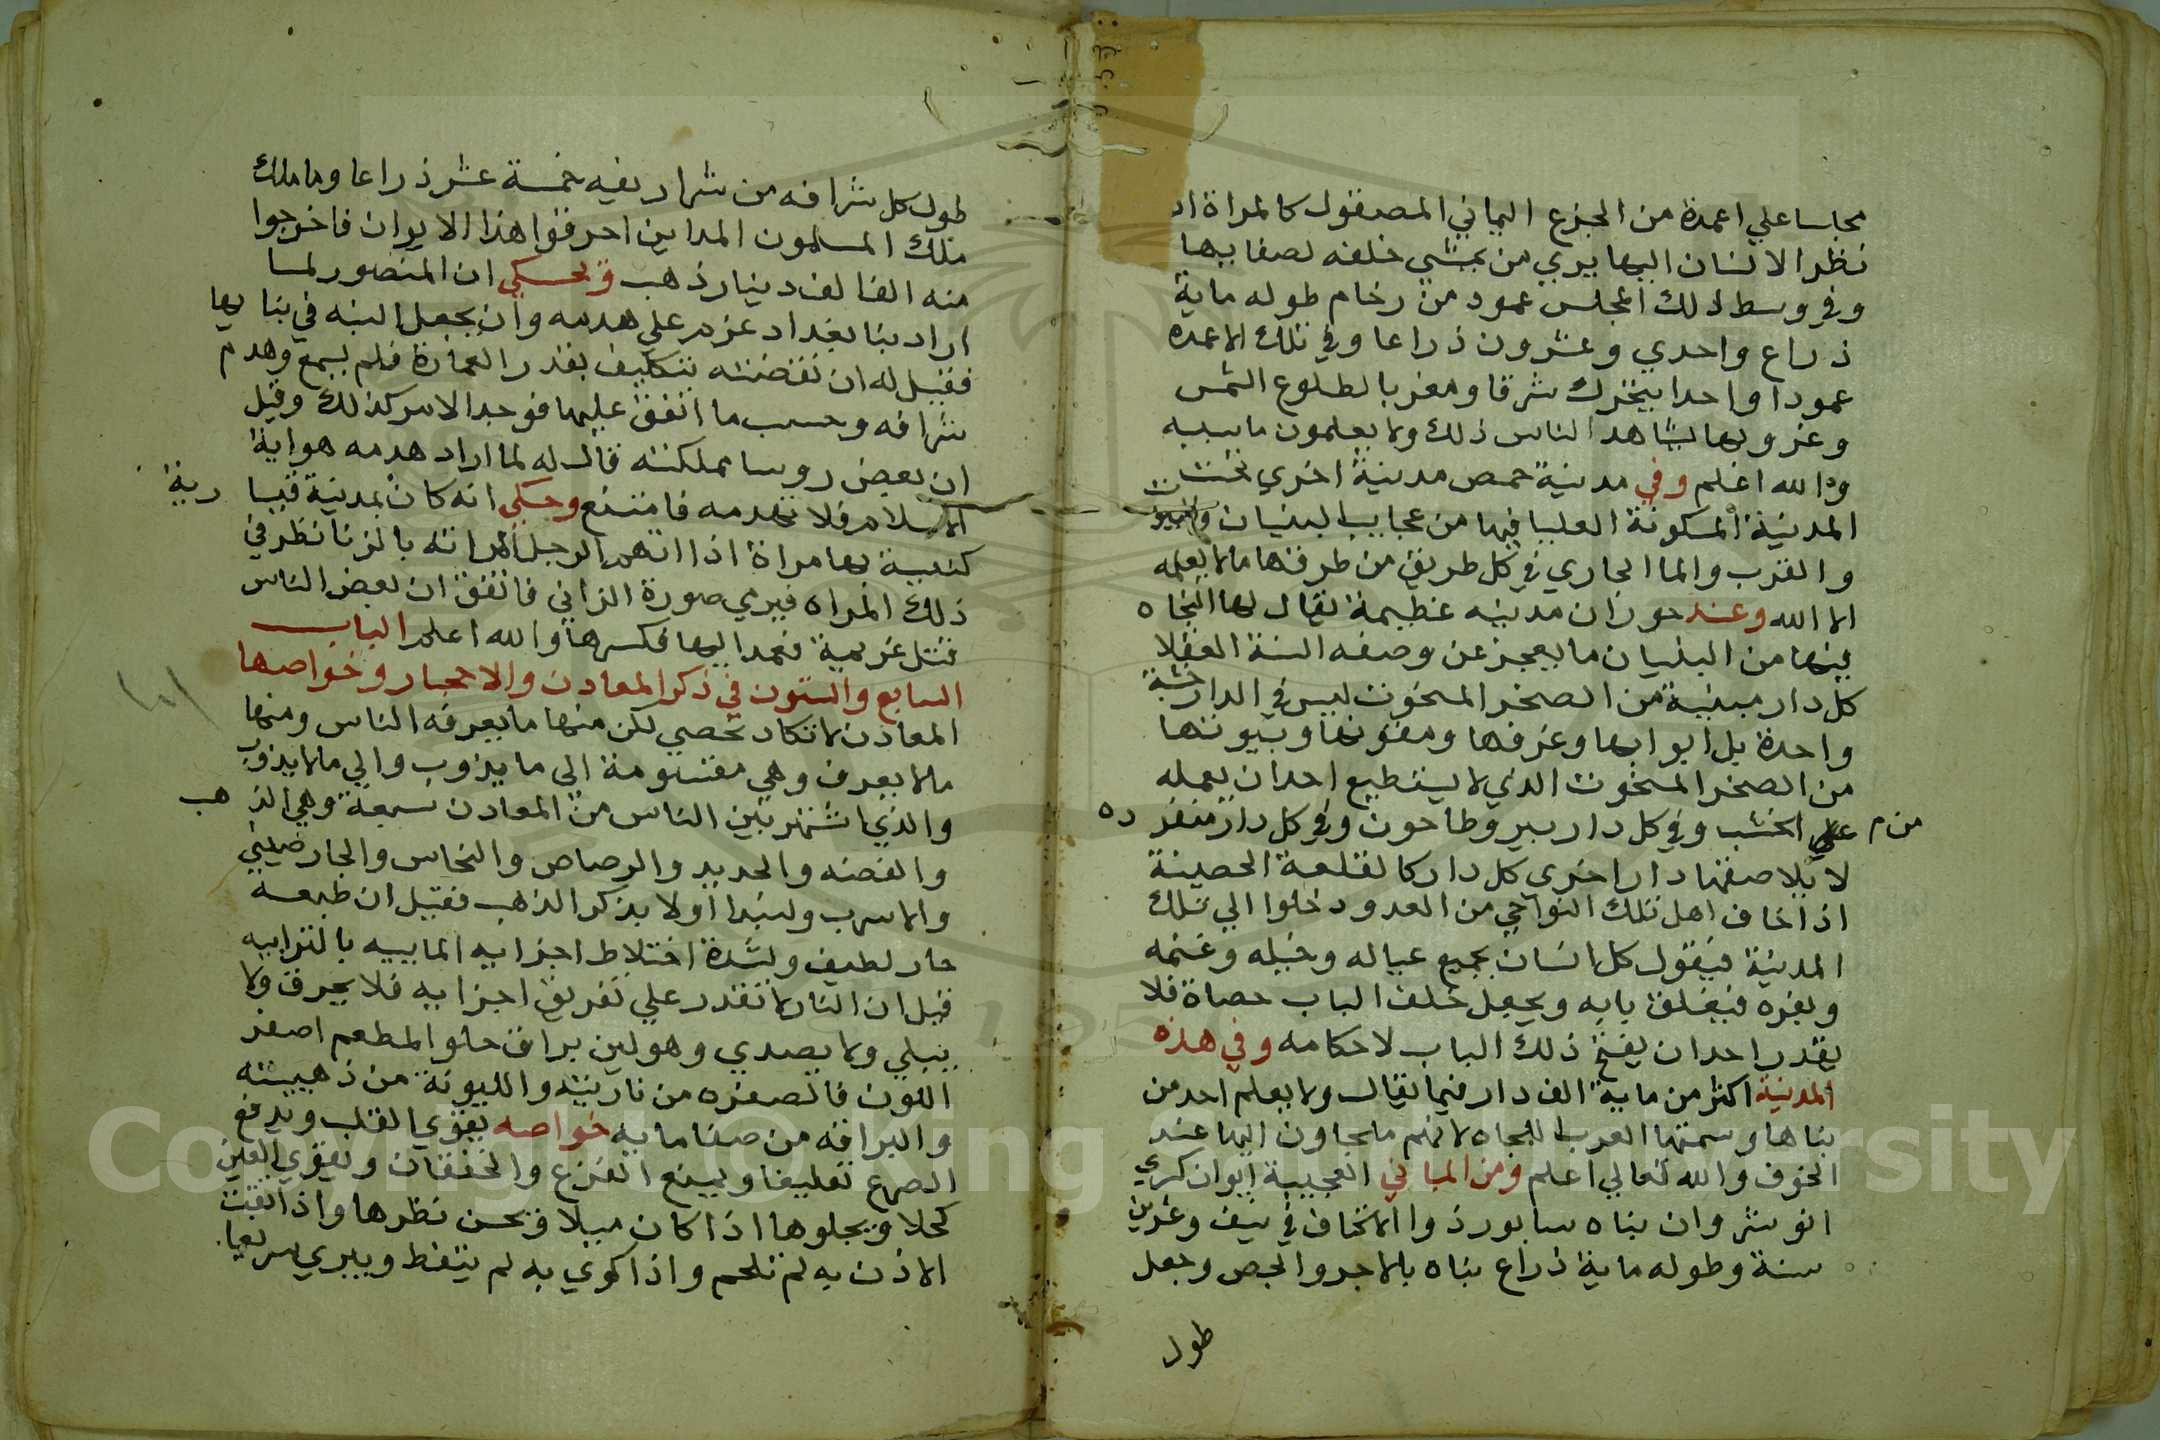 مجلسا علي اعمدة من الجزع اليماني المصقول كالمراة اذا
نظر الانسان اليها يري من يمشي خلفه لصفايها
وفي وسط ذلك المجلس عمود من رخام طوله ماية
ذراع واحدي وعشرون ذراعا وفي تلك الاعمده
عمودا واحدا يتحرك شرقا ومغربا لطلوع الشمس
وغروبها يشاهد الناس ذلك ولا يعلمون ما سببه
والله اعلم وفي مدينة حمص مدينة اخري تحت
المدينة المسكونة العليا فيها من عجايب البنيان والبيوت
والغرب والما الجاري في كل طريق من طرقها مالا يعلمه
الا الله وعند حوران مدينه عظيمة يقال لها اللجاه
فيها من البنيان ما يعجز عن وصفه السنة العقلا
كل دار مبنية من الصخر المنحوت ليس في الدار خشبة
واحدة بل ابوابها وغرفها وسقوفها وبيوتها
من الصخر المنحوت الذي لا يستطيع احد ان يعمله
من م علي الخشب وفي كل دار بير وطاحون وفي كل دار منفرده
لا يلاصقها دار اخري كل دار كالقلعة الحصينة
اذا خاف اهل تلك النواحي من العدو دخلوا الي تلك
المدينة فيقول كل انسان بجميع عياله وخيله وغنمه
وبقره فيغلق بابه ويجعل خلف الباب حصاة فلا
يقدر احد ان يفتح ذلك الباب لاحكامه وفي هذه
المدينة اكثر من ماية الف دار فيما يقال ولا يعلم احد من
بناها وسمتها العرب اللجاه لانهم يلجاون اليها عند
الخوف والله تعالي اعلم ومن المباني العجيبة ايوان كسري
انوشروان بناه سابور ذوا الاكتاف في نيف وعشرين
سنة وطوله ماية ذراع بناه بالاجر والجص وجعل
طول
طول كل شرافه من شراريفه خمسة عشر ذراعا وما ملك
ملك المسلمون المداين احرقوا هذا الايوان فاخرجوا
منه الف الف دينار ذهب وحكي ان المنصور لما
اراد بنا بغداد عزم علي هدمه وان يجعل البته في بنايها
فقيل له ان نقضته بتكليف بقدر العمارة فلم يسمع وهدم
شرافه وحسب ما انفق عليها فوجد الامر كذلك وقيل
ان بعض روسا مملكته قال له لما اراد هدمه هو اية
الاسلام فلا تهدمه فامتنع وحكي انه كان بمدينة قيسارية
كنيسة بها مراة اذا اتهم الرجل امراته بالزنا نظر في
ذلك المراه فيري صورة الزاني فاتفق ان بعض الناس
قتل غريمه فعمد اليها فكسرها والله اعلم الباب
السابع والستون في ذكر المعادن والاحجار وخواصها
المعادن لا تكاد تحصي لكن منها ما يعرفه الناس ومنها
مالا يعرف وهي مقسومة الي ما يذوب والي مالا يذوب
والذي اشتهر بين الناس من المعادن سبعة وهي الذهب
والفضه والحديد والرصاص والنحاس والخارصيني
والاسرب ولنبدا اولا بذكر الذهب فقيل ان طبعه
حار لطيف ولشدة اختلاط اجزايه المايية بالترابيه
قيل ان النار لا تقدر علي تفريق اجزايه فلا يحرق ولا
يبلي ولا يصدي وهو لين براق حلو المطعم اصفر
اللون فالصفره من ناريته والليونة من ذهبيته
والبراقه من صفا مايه خواصه يقوي القلب ويدفع
الصرع تعليقا ويمنع الفزع والخفقان ويقوي العين
كحلا ويجلوها اذا كان ميلا ويحسن نظرها واذا ثقبت
الاذن به لم تلحم واذا كوي به لم يتنفط ويبري سريعا